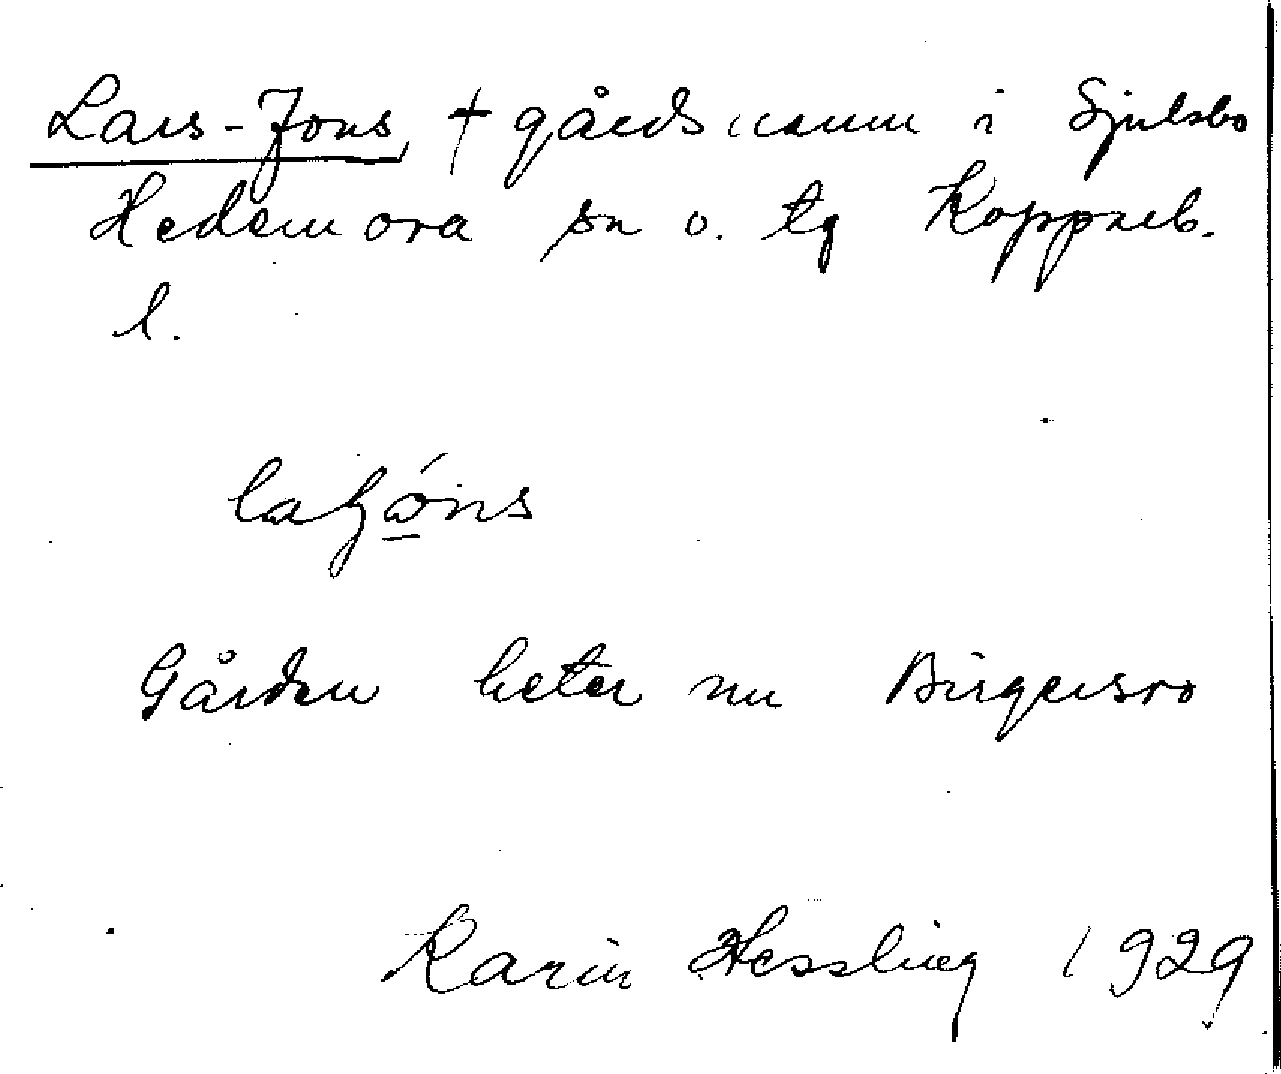 Lars-Jons, † gårdsnamn i Sjulsbo
Hedemora sn o. tg Kopparb.
l.
Gården heter nu Birgersro
Karin Hessling 1929